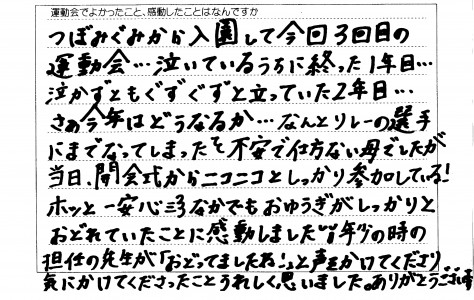 運動会でよかったこと、感動したことはなんですか
つぼみぐみから入園して今回3回目の
運動会…泣いているうちに終った1年目…
泣かずともぐずぐずと立っていた2年目…
さぁ今年はどうなるか…なんとリレーの選手
にまでなってしまったを不安で仕方ない母でしたが
当日、開会式からニコニコとしっかり参加している!
ホッと一安心 なかでもおゆうぎがしっかりと
おどれていたことに感動しました!!年少の時の
担任の先生が「おどってましたね!」と声をかけてくださり
気にかけてくださったことうれしく思いました。ありがとうございま